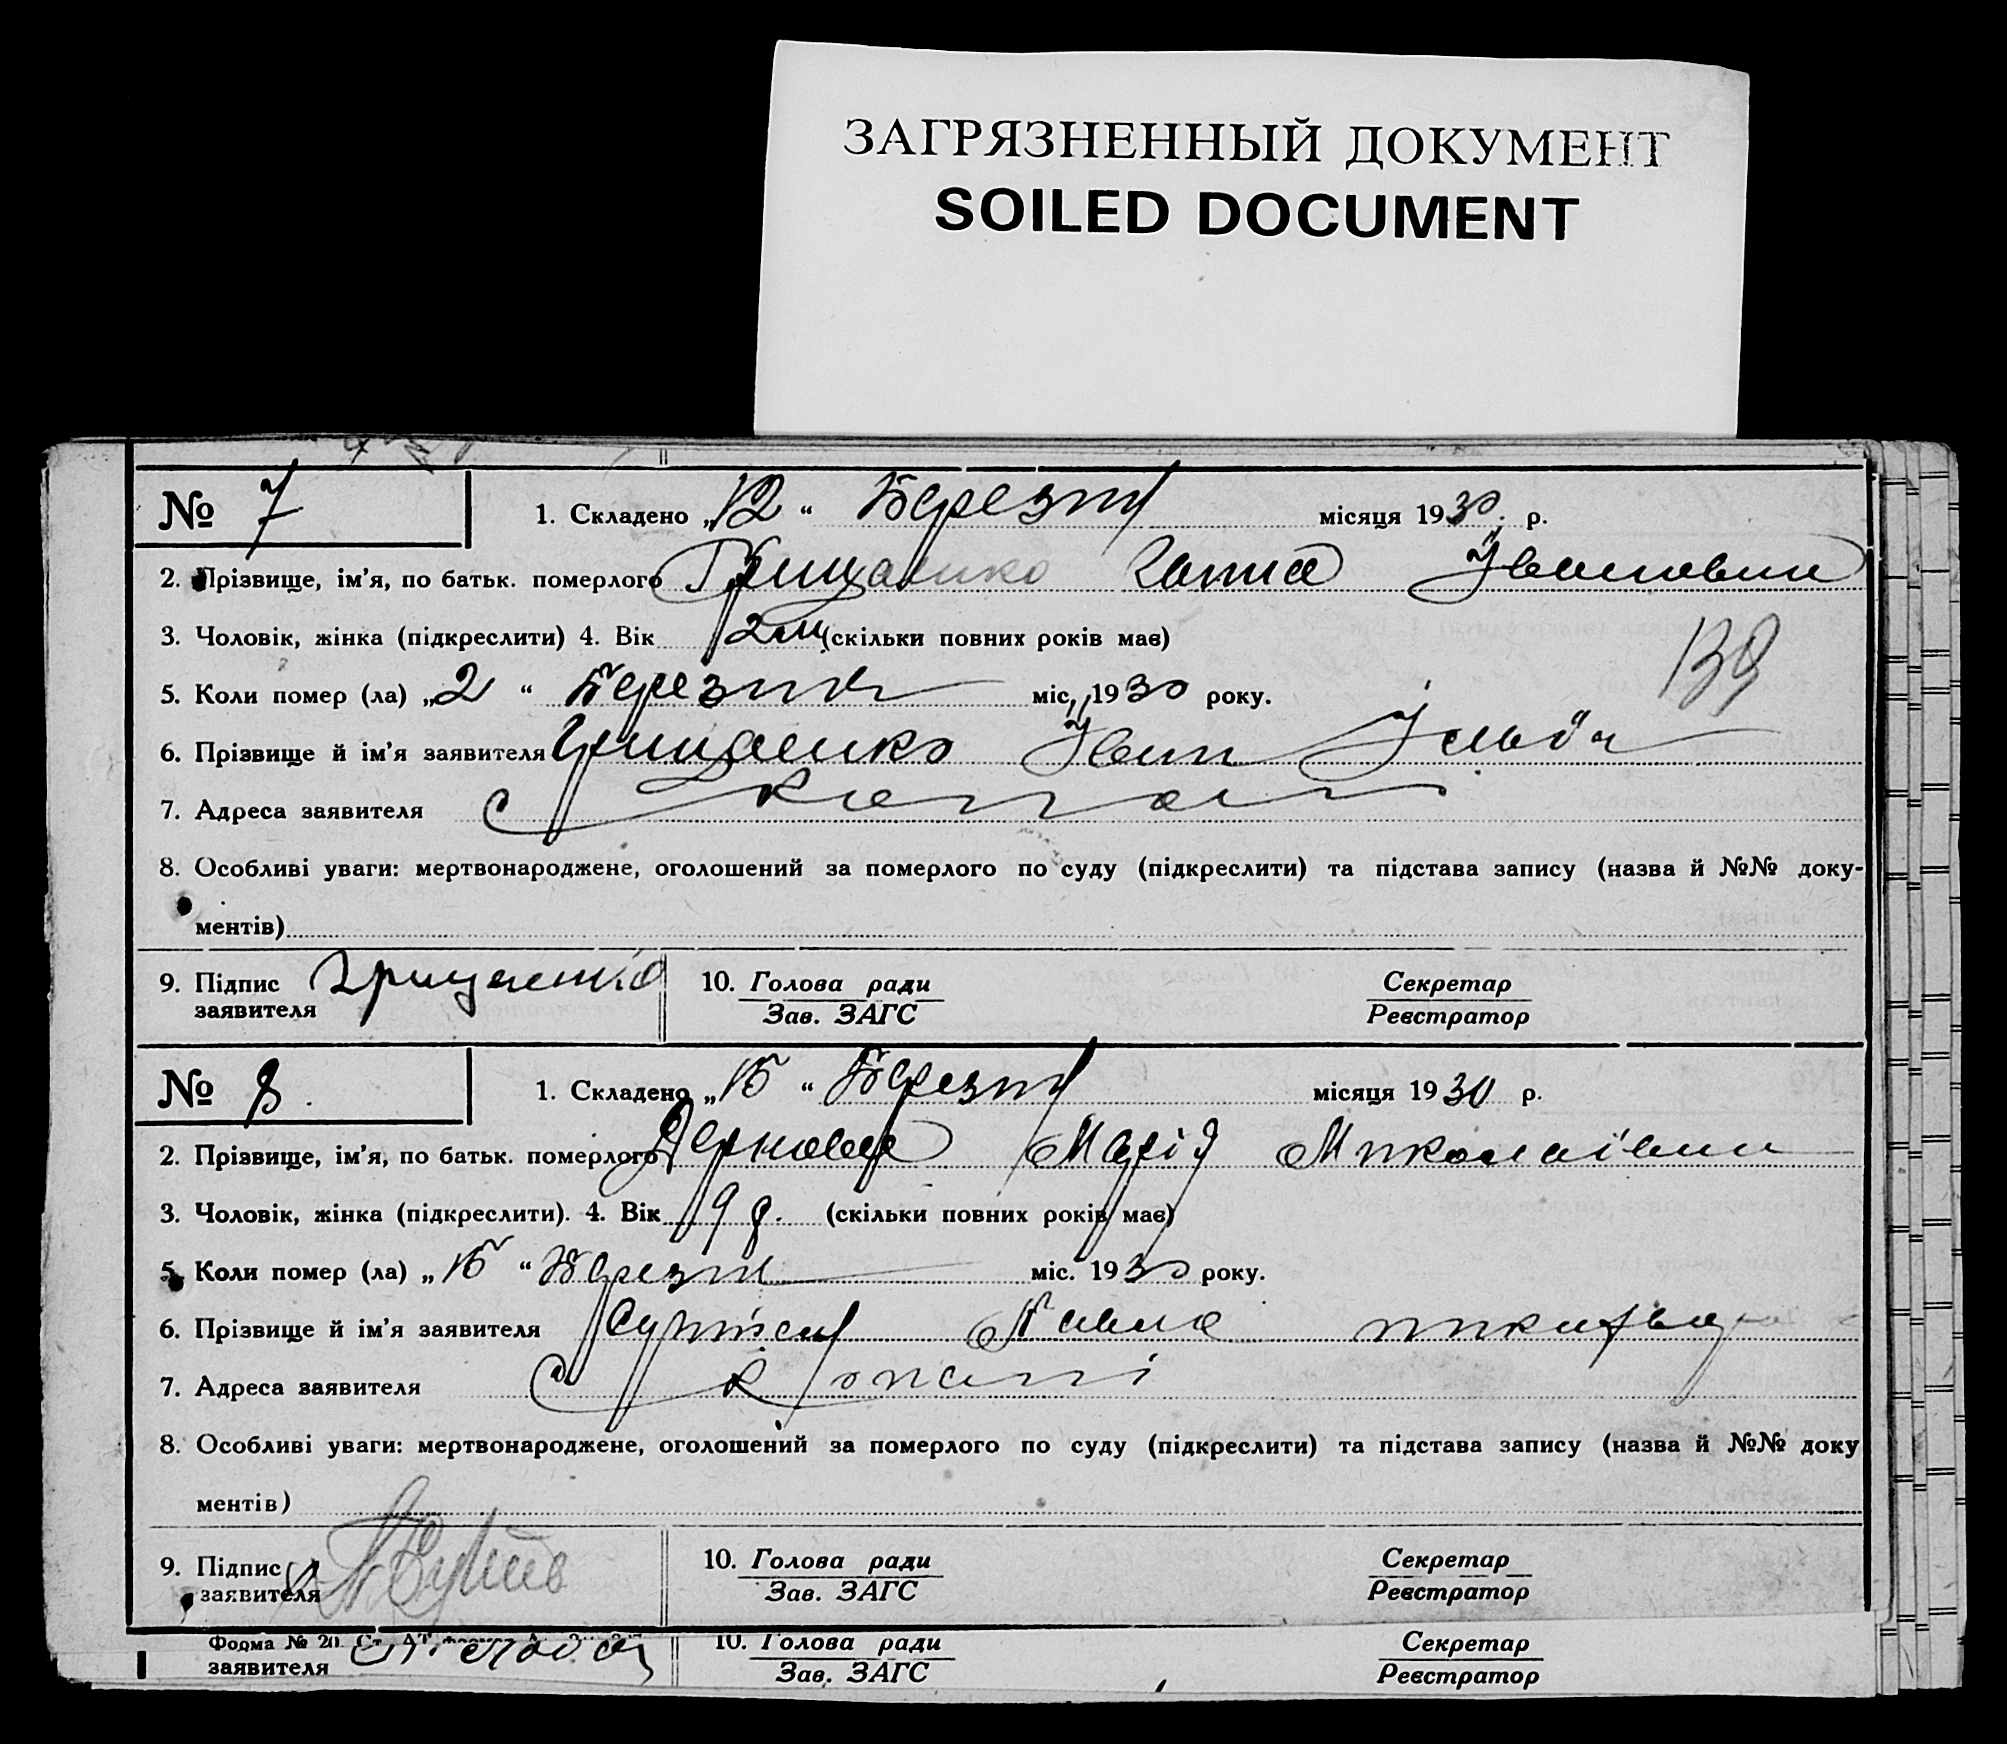 ЗАГРЯЗНЕННЫЙ ДОКУМЕНТ
SOILED DOCUMENT
№ 7
1. Складено „12“ Березня місяця 1930 р.
2. Прізвище, ім'я, по батьк. померлого Грищенко Ганна Івановни
3. Чоловік, жінка (підкреслити) 4. Вік 2 м (скільки повних років має)
5. Коли помер (ла) „2“ Березня міс. 1930 року.
6. Прізвище й ім'я заявителя Грищенко Іван
7. Адреса заявителя с
8. Особливі уваги: мертвонароджене, оголошений за померлого по суду (підкреслити) та підстава запису (назва й №№ доку-
ментів)
9. Підпис Грищенко
заявителя
10. Голова ради
Зав. ЗАГС
Секретар
Реєстратор
№ 8.
1. Складено „15“ Березня місяця 1930 р.
2. Прізвище, ім'я, по батьк. померлого Марія Миколаівни
3. Чоловік, жінка (підкреслити). 4. Вік (скільки повних років має)
5. Коли помер (ла) „15“ Березня міс. 1930 року.
6. Прізвище й ім'я заявителя Павло
7. Адреса заявителя с Копані
8. Особливі уваги: мертвонароджене, оголошений за померлого по суду (підкреслити) та підстава запису (назва й №№ доку
ментів)
9. Підпис
заявителя
10. Голова ради
Зав. ЗАГС
Секретар
Реєстратор
Форма № 20.
заявителя
10. Голова ради
Зав. ЗАГС
Секретар
Реєстратор